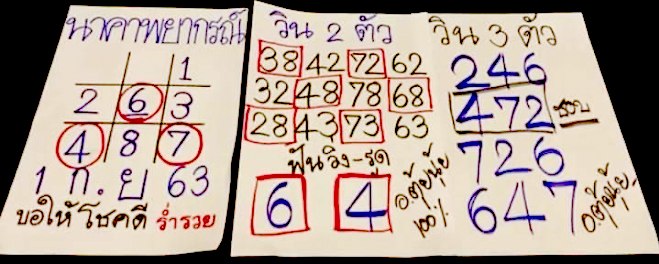 นาคาพยากรณ์
1
2 6 3
4 8 7
1 ก.ย 63
ขอให้โชคดี ร่ำรวย
วิน 2 ตัว
38 42 72 62
32 48 78 68
28 43 73 63
ฟันวิ่ง-รูด
6 4
อ.ตุ้ยนุ้ย
100%
วิน 3 ตัว
246
472 ชอบ
726
647
อ.ตุ้ยนุ้ย